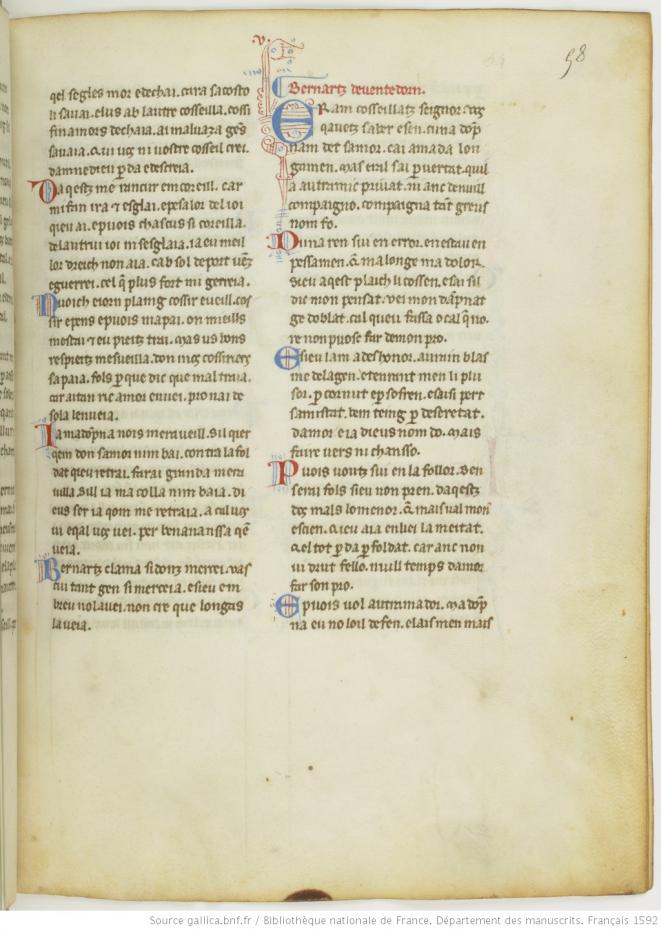 v.
58
qel segles mor e dechai. cura sa costo
li sauai. elus ab lautre cosseilla. cossi
fin amors dechaia. ai maluaza ges
sauaia. qui uos ni uostre cosseil crei.
damnedieu perda e descreia.
Daqestz me rancur em coreill. car
mi fan ira et esglai. e pesa lor del ioi
qieu ai. e puois chascus si coreilla.
de lautrui ioi ni sesglaia. ia eu meil
lor dreich non aia. cab sol deport
eguerrei. cel qe plus fort mi gerreia.
Nuoich e iorn plaing cossir e ueill. cos
sir e pens e puois mapai. on mieills
mestai et eu pieitz trai. mas us bons
respieitz mesueilla. don mos cossiriers
sapaia. fols per que dic que mal traia.
car aitan ric amor enuei. pro nai de
sola lenueia.
Ia ma dompna nois meraueill. sil quer
qem don samor nim bai. contra la fol
dat qieu retrai. fara i genzda mera
uilla. sill ia ma colla nim baia. di
eus ser ia qom me retraia. a cal uos
ui e qal uos uei. per benananssa qe
ueia.
Bernartz clama sidonz mercei. uas
cui tant gen si merceia. e sieu em
breu no la uei. non cre que longas
la ueia.
Bernartz de uentedorn.
ERam cosseillatz seignor. uos
qauetz saber e sen. cuna domp
nam det samor. cai amada lon
gamen. mas eril sai per uertat. quil
a autramic priuat. ni anc de nuill
compaigno. compaigna tant greus
nom fo.
Duna ren sui en error. en estau en
pessamen. que malonge ma dolor.
sieu aqest plaich li cossen. e sai sil
dic mon pensat. uei mon dampnat
ge doblat. cal queu fassa o cal qe no.
re non puosc far de mon pro.
E sieu lam a deshonor. aurai n blas
me de la gen. e tenrant men li plu
sor. per cornut e per sofren. e saisi pert
samistat. bem teing per deseretat.
damor e ia dieus nom do. mais
faire uers ni chansso.
Puois uoutz sui en la follor. ben
serai fols sieu non pren. daqestz
dos mals lo menor. que mais ual mon
escien. qieu aia en liei la meitat.
qel tot perda per foldat. car anc non
ui drut fello. nuill temps damor
far son pro.
E puois uol autramador. ma domp
na eu no loil defen. e lais men mais
Source gallica.bnf.fr / Bibliothèque nationale de France. Département des manuscrits. Français 1592